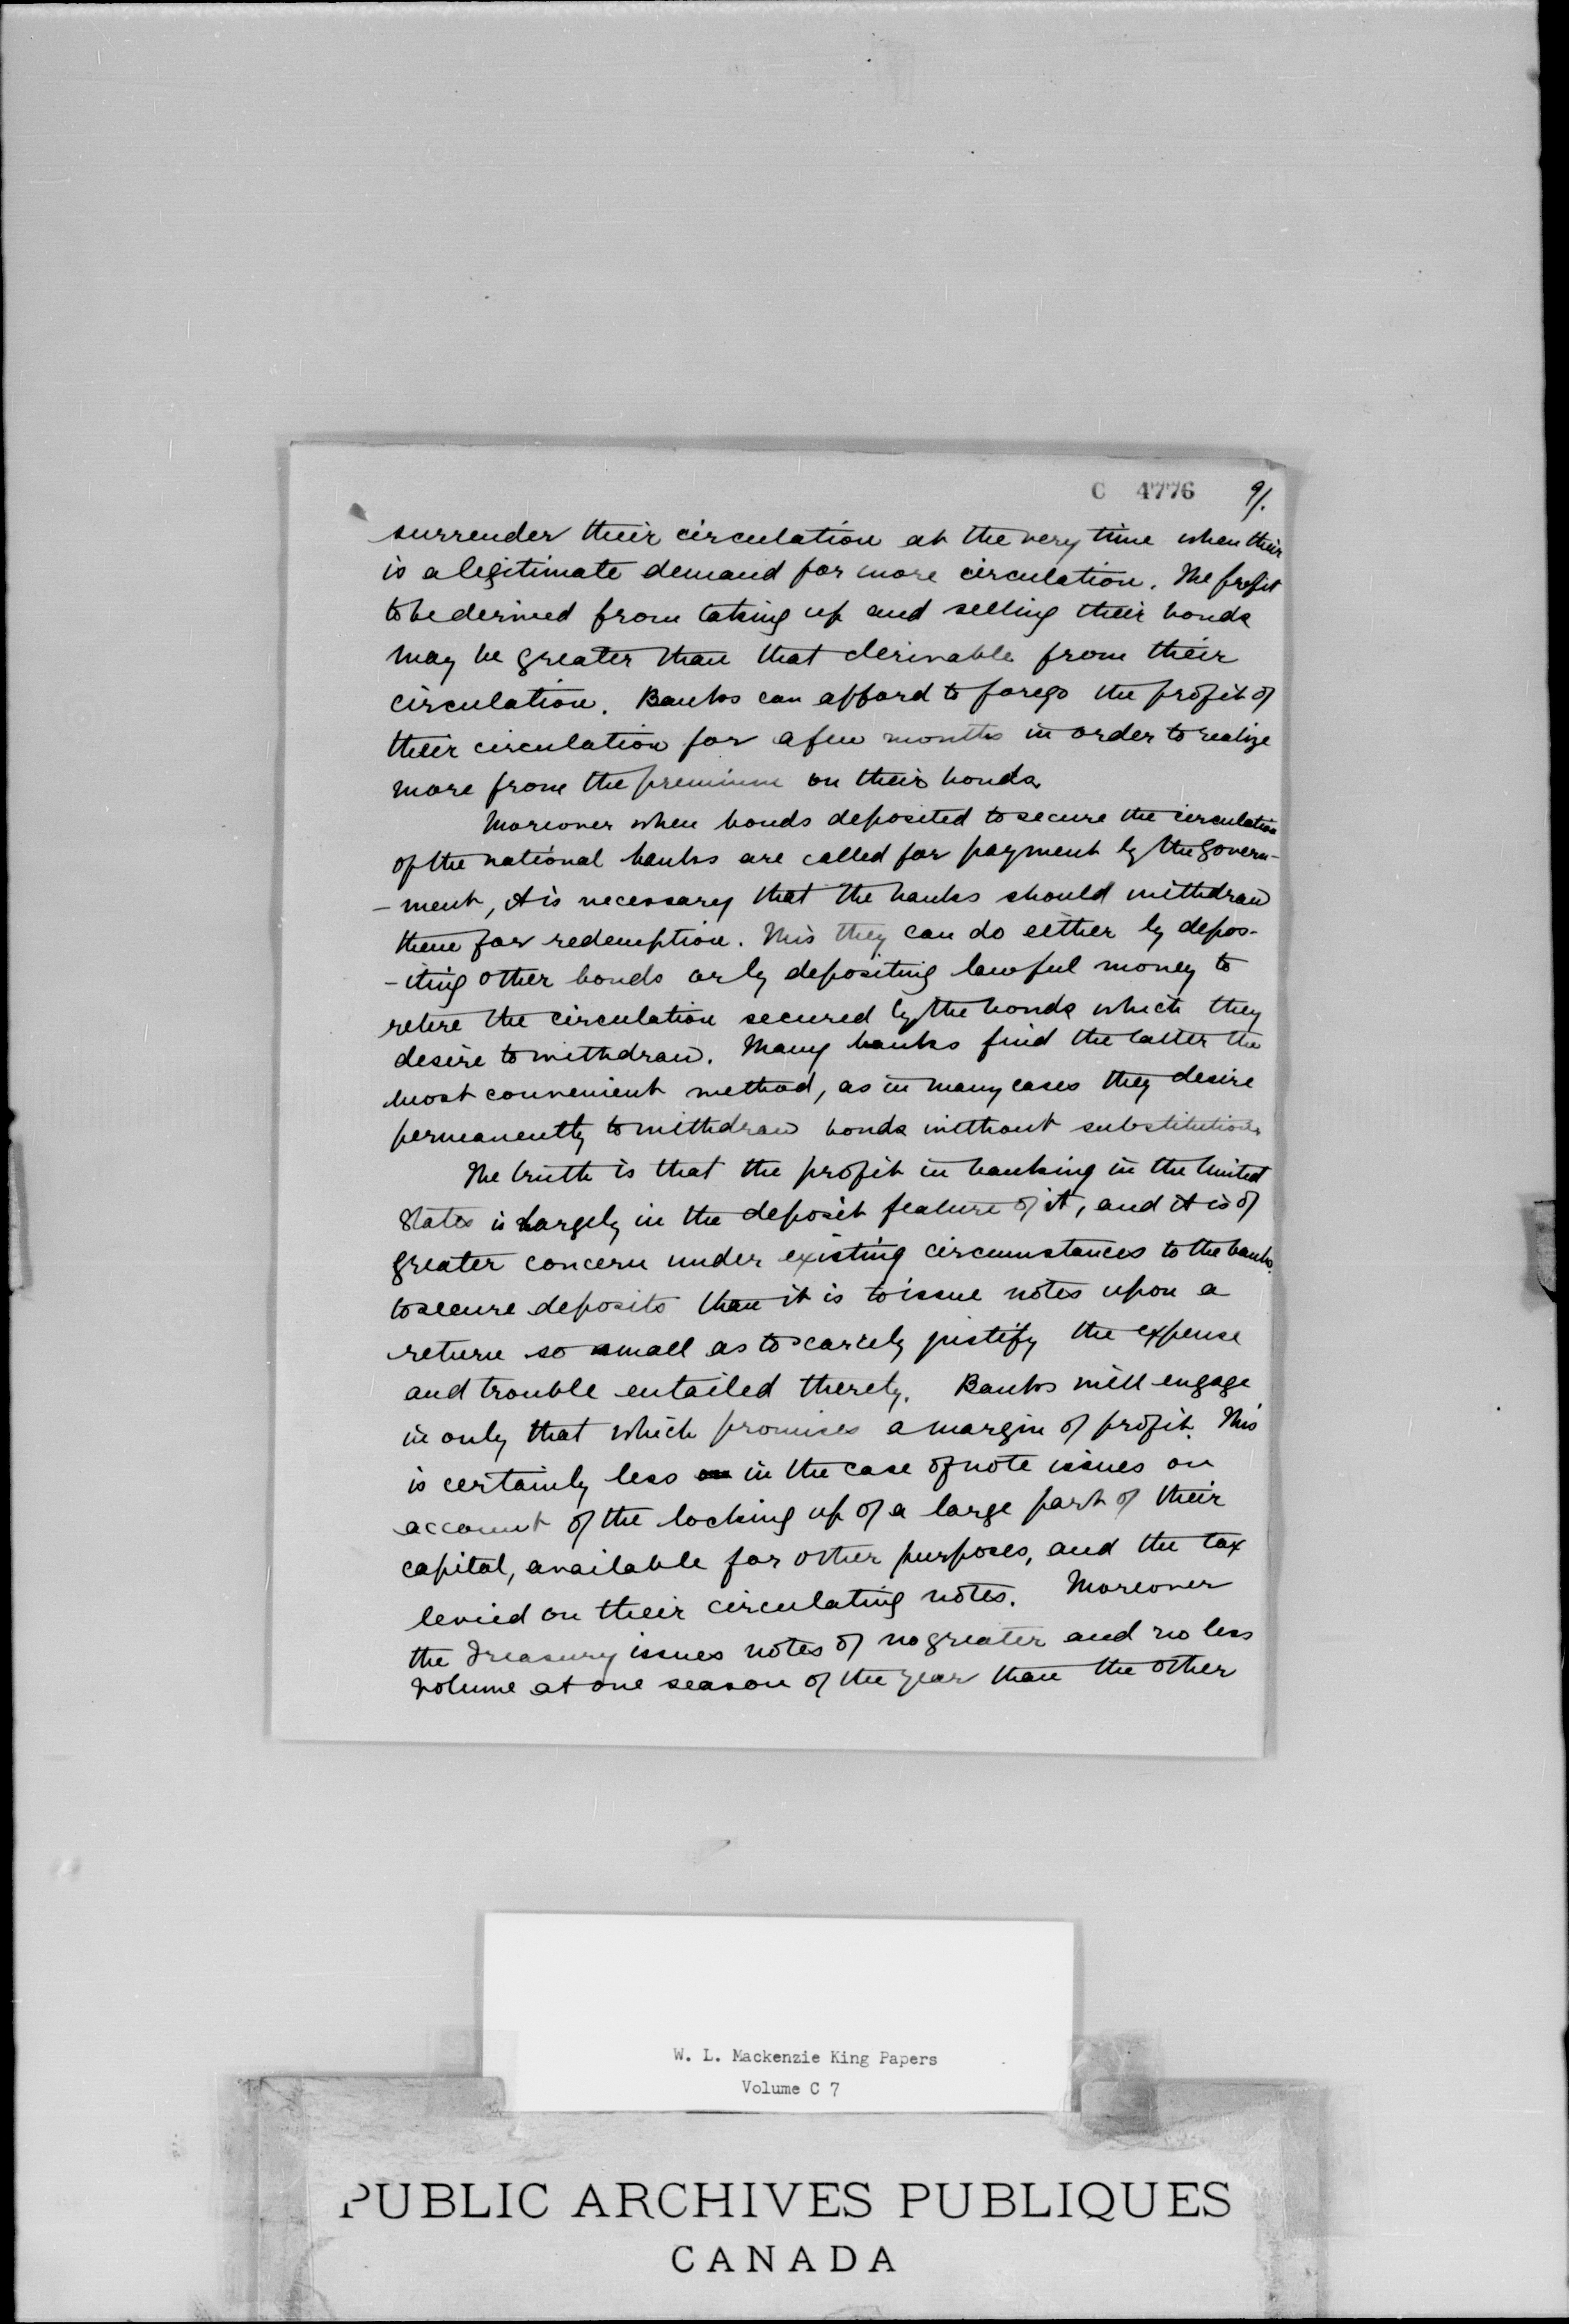 C 4776 9/.
surrender their circulation at the very time when their
is a legitimate demand for more circulation. The profit
to be derived from taking up and selling their bonds
may be greater than that derivable from their
circulation. Banks can afford to forego the profit of
their circulation for a few months in order to realize
more from the premium on their bonds.
Moreover when bonds deposited to secure the circulation
of the national banks are called for payment by the Govern-
-ment, it is necessary that the banks should withdraw
them for redemption. This they can do either by depos-
-iting other bonds or by depositing lawful money to
retire the circulation secured by the bonds which they
desire to withdraw. Many banks find the latter the
most convenient method, as in many cases they desire
permanently to withdraw bonds without substitution.
The truth is that the profit in banking in the United
States is largely in the deposit feature of it, and it is of
greater concern under existing circumstances to the banks
to secure deposits than it is to issue notes upon a
return so small as to scarcely justify the expense
and trouble entailed thereby. Banks will engage
in only that which promises a margin of profit. This
is certainly less on in the case of note issues on
account of the locking up of a large part of their
capital, available for other purposes, and the tax
levied on their circulating notes. Moreover
the Treasury issues notes of no greater and no less
volume at one season of the year than the other
W. L. Mackenzie King Papers
Volume C 7
PUBLIC ARCHIVES PUBLIQUES
CANADA